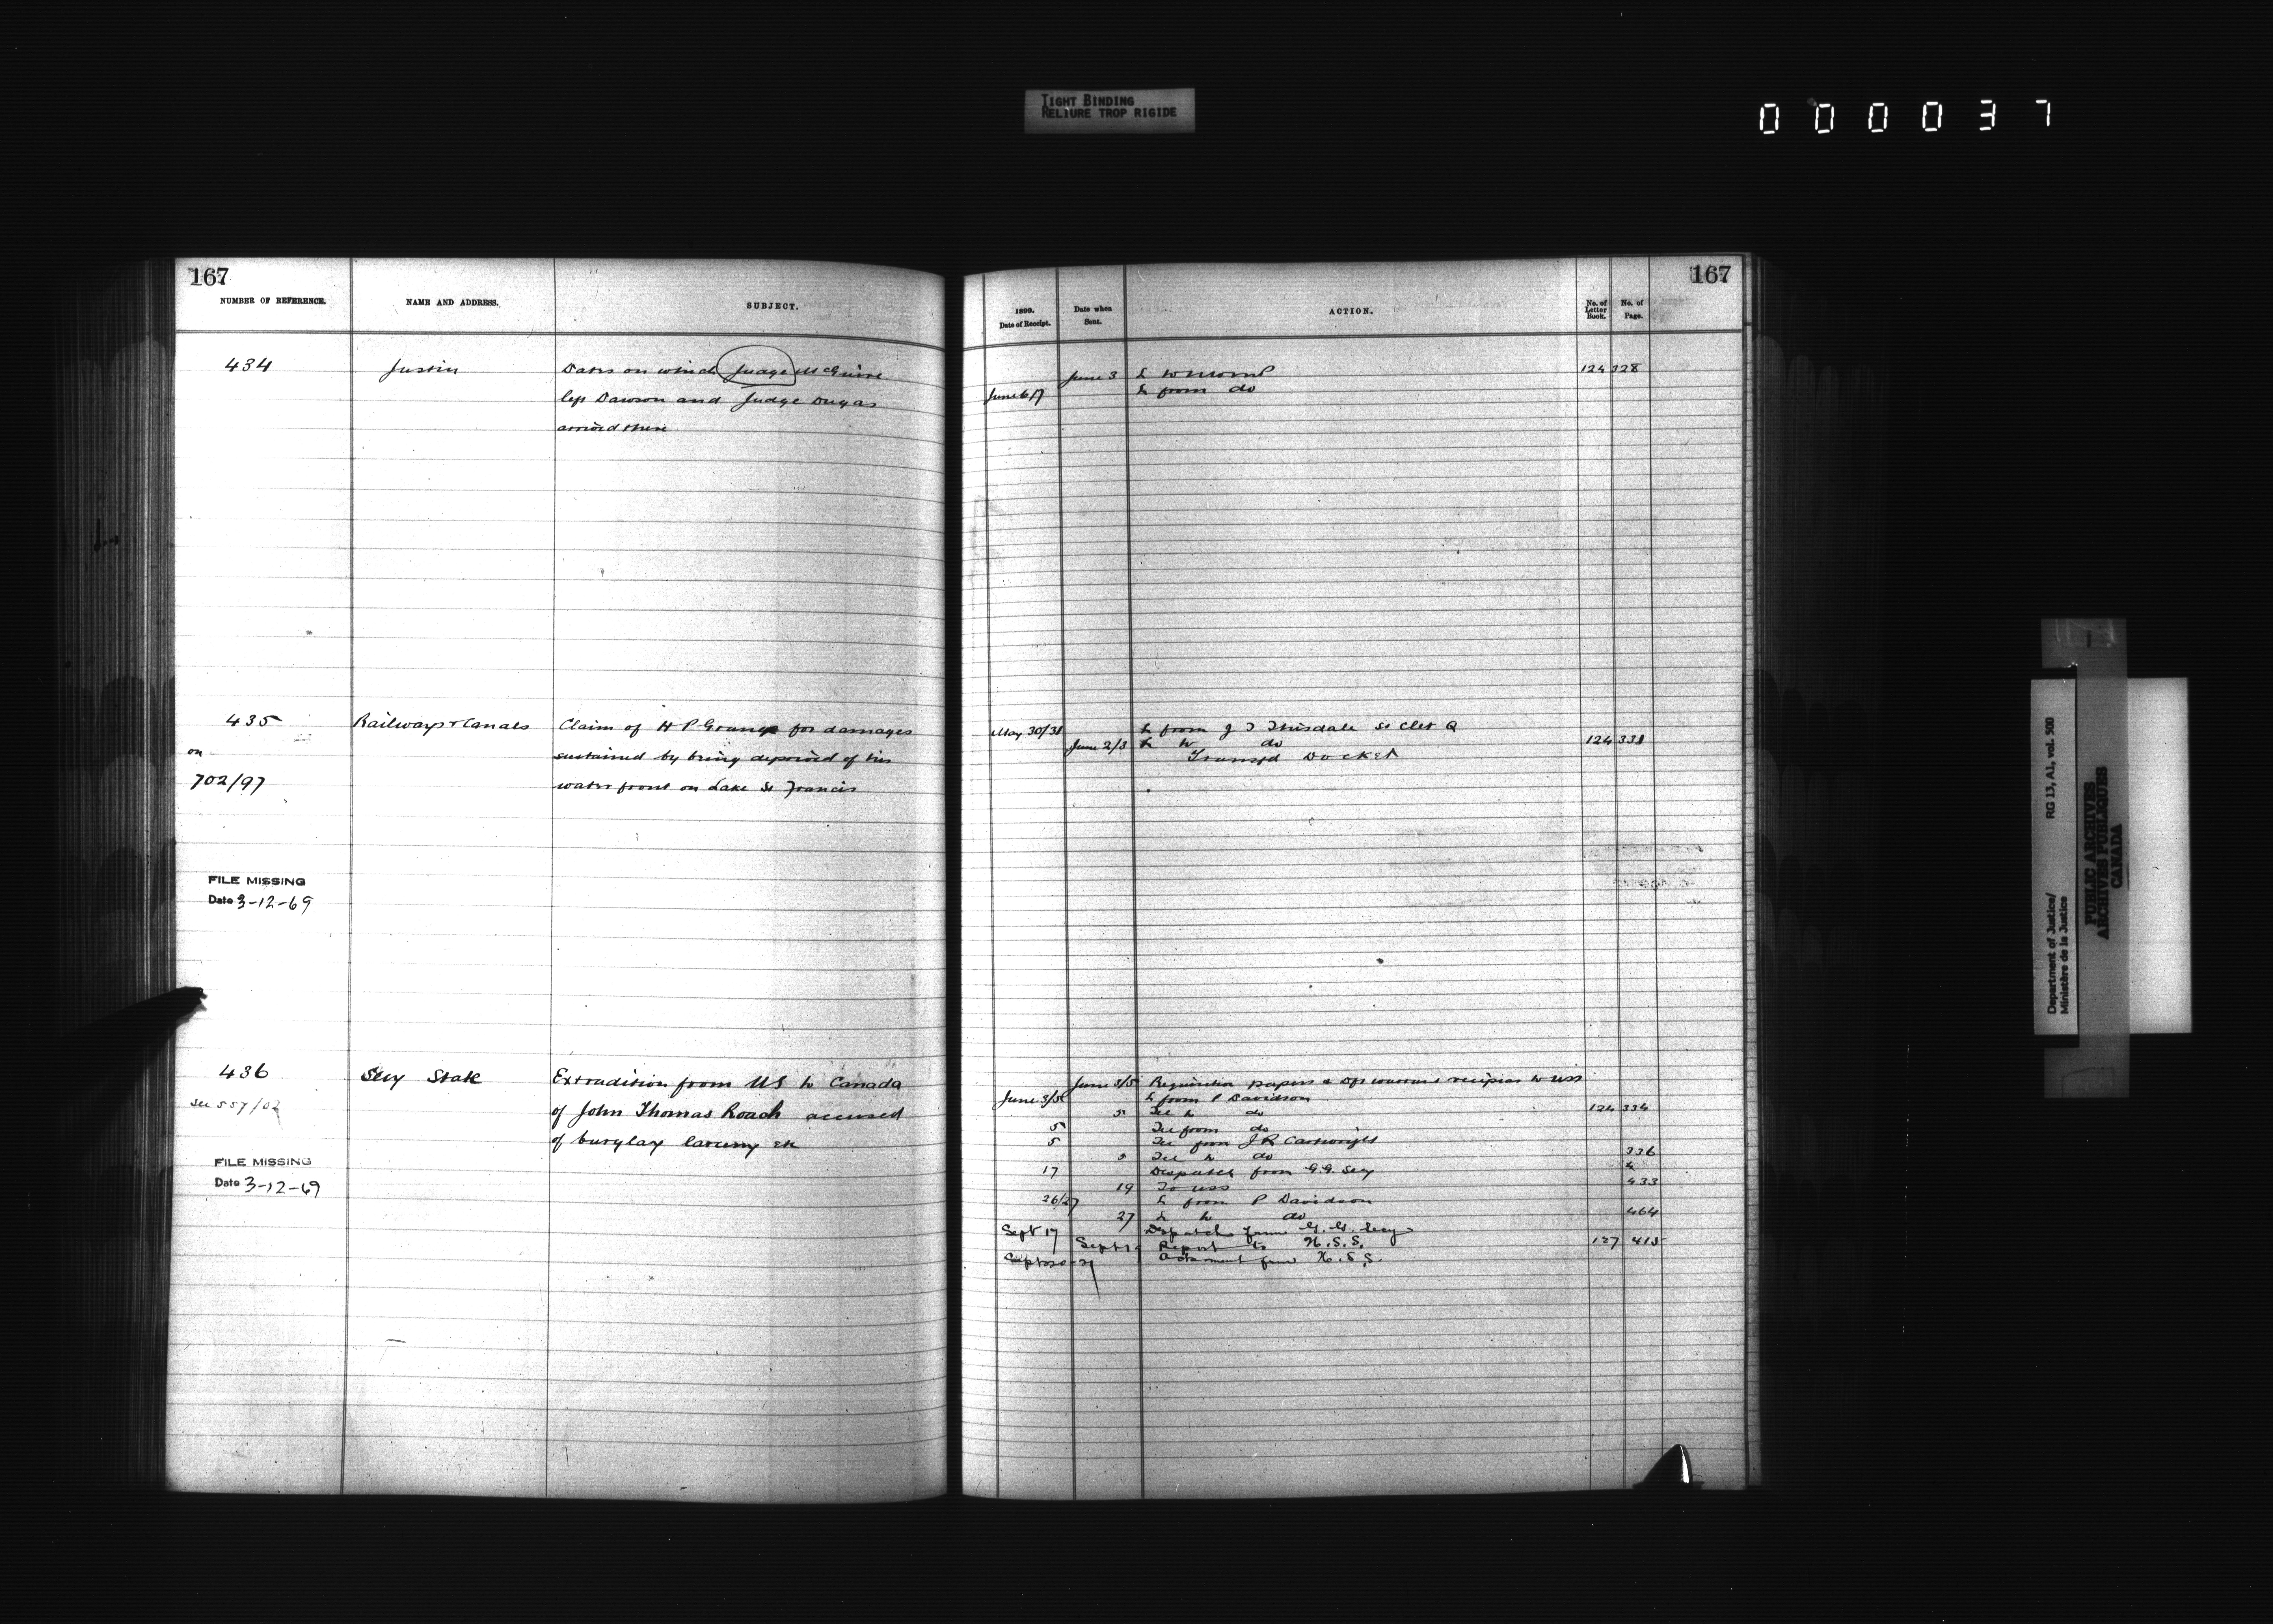 TIGHT BINDING
RELIURE TROP RIGIDE
000037
167
NUMBER OF REFERENCE.
NAME AND ADDRESS.
SUBJECT.
434
Justice
Dates on which Judge McGuire
left Dawson and Judge Dugas
arrived there
435
on
702/97
Railways & Canals
Claim of H P Grange for damages
sustained by being deprived of his
water front on Lake St Francis
FILE MISSING
Date 3-12-69
436
see 557/02
Secy State
Extradition from US to Canada
of John Thomas Roach accused
of burglary larceny etc
FILE MISSING
Date 3-12-69
167
1899.
Date of Receipt.
Date when
Sent.
ACTION.
No. of
Letter
Book.
No. of
Page.
June 3 L to 124 328
June 6/7 L from do
May 30/31 L from J T Thisdale St Clet Q
June 2/3 L to do 124 331
Transfd Docket
June 3/5 Requisition papers & to USS
June 3/5 L from P Davidson
5 Tel to do 124 334
5 Tel from do
5 Tel from J R Cartwright
5 Tel to do 336
17 Despatch from G.G. Secy
19 To USS 433
26/27 L from P Davidson
27 L to do 464
Sept 17 Despatch from G. G. Secy
Sept Report to 127 415
from
Department of Justice/
Ministère de la Justice
RG 13, A1, vol. 500
PUBLIC ARCHIVES
ARCHIVES PUBLIQUES
CANADA